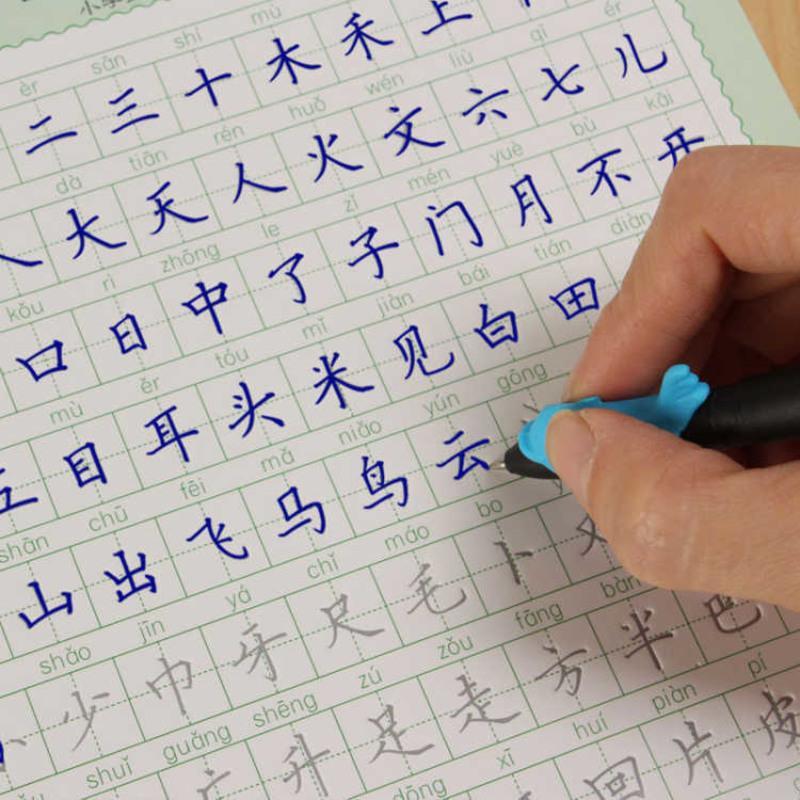 èr sān shí mù
二 三 十 木 禾 上
dà tiān rén huǒ wén liù qī ér
大 天 人 火 文 六 七 儿
kǒu rì zhōng le zǐ mén yuè bù kāi
口 日 中 了 子 门 月 不 开
mù ěr tóu mǐ jiàn bái tián diàn
目 耳 头 米 见 白 田
shān chū fēi mǎ niǎo yún gōng
山 出 飞 马 鸟 云
shǎo jīn yá chǐ máo bo
少 巾 牙 尺 毛 卜
shuǐ guǎng shēng zú zǒu fāng bàn
广 升 足 走 方 半 巴
dōng xī huí piàn pí
回 片 皮